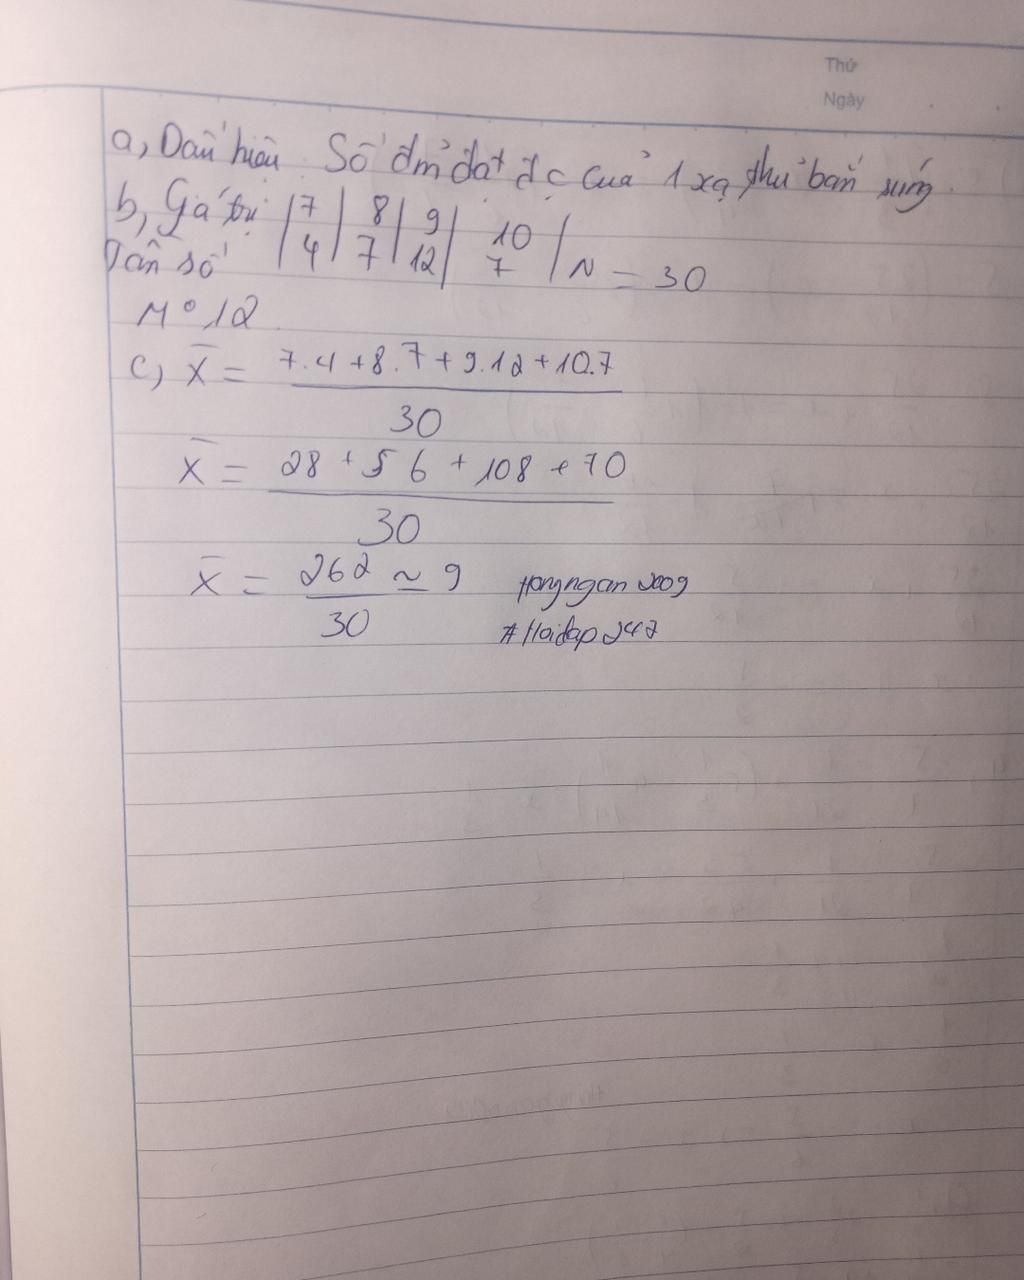 Thứ
Ngày
a, Dấu hiệu: Số điểm đạt đc của 1 xạ thủ bắn súng.
b, Giá trị | 7 | 8 | 9 | 10 |
Tần số | 4 | 7 | 12 | 7 | N = 30
M° 12
c, X̄ = 7.4 + 8.7 + 9.12 + 10.7
30
X̄ = 28 + 56 + 108 + 70
30
X̄ = 262 ≃ 9 Hongngan2009
30 #Hoidap247